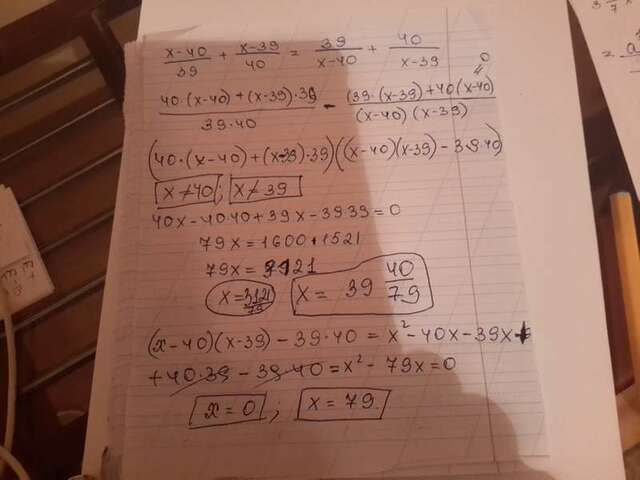 x-40/39 + x-39/40 = 39/x-40 + 40/x-39
40·(x-40)+(x-39)·39/39·40 - (39·(x-39)+40(x-40)/(x-40)(x-39) = 0
(40·(x-40)+(x-39)·39)((x-40)(x-39)-39·40)
x≠40; x≠39
40x-40·40+39x-39·39=0
79x=1600+1521
79x=3121
x=3121/79 x= 39 40/79
(x-40)(x-39)-39·40=x²-40x-39x+
+40·39-39·40=x²-79x=0
x=0; x=79